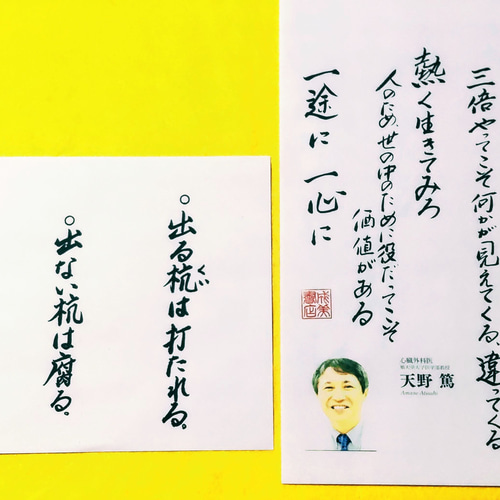 三倍やってこそ何かが見えてくる、違ってくる
熱く生きてみろ
人のため、世の中のために役だってこそ
価値がある
一途に 一心に
成美書店
心臓外科医
順天堂大学医学部教授
天野 篤
Amano Atsushi
○出る杭は打たれる。
くい
○出ない杭は腐る。